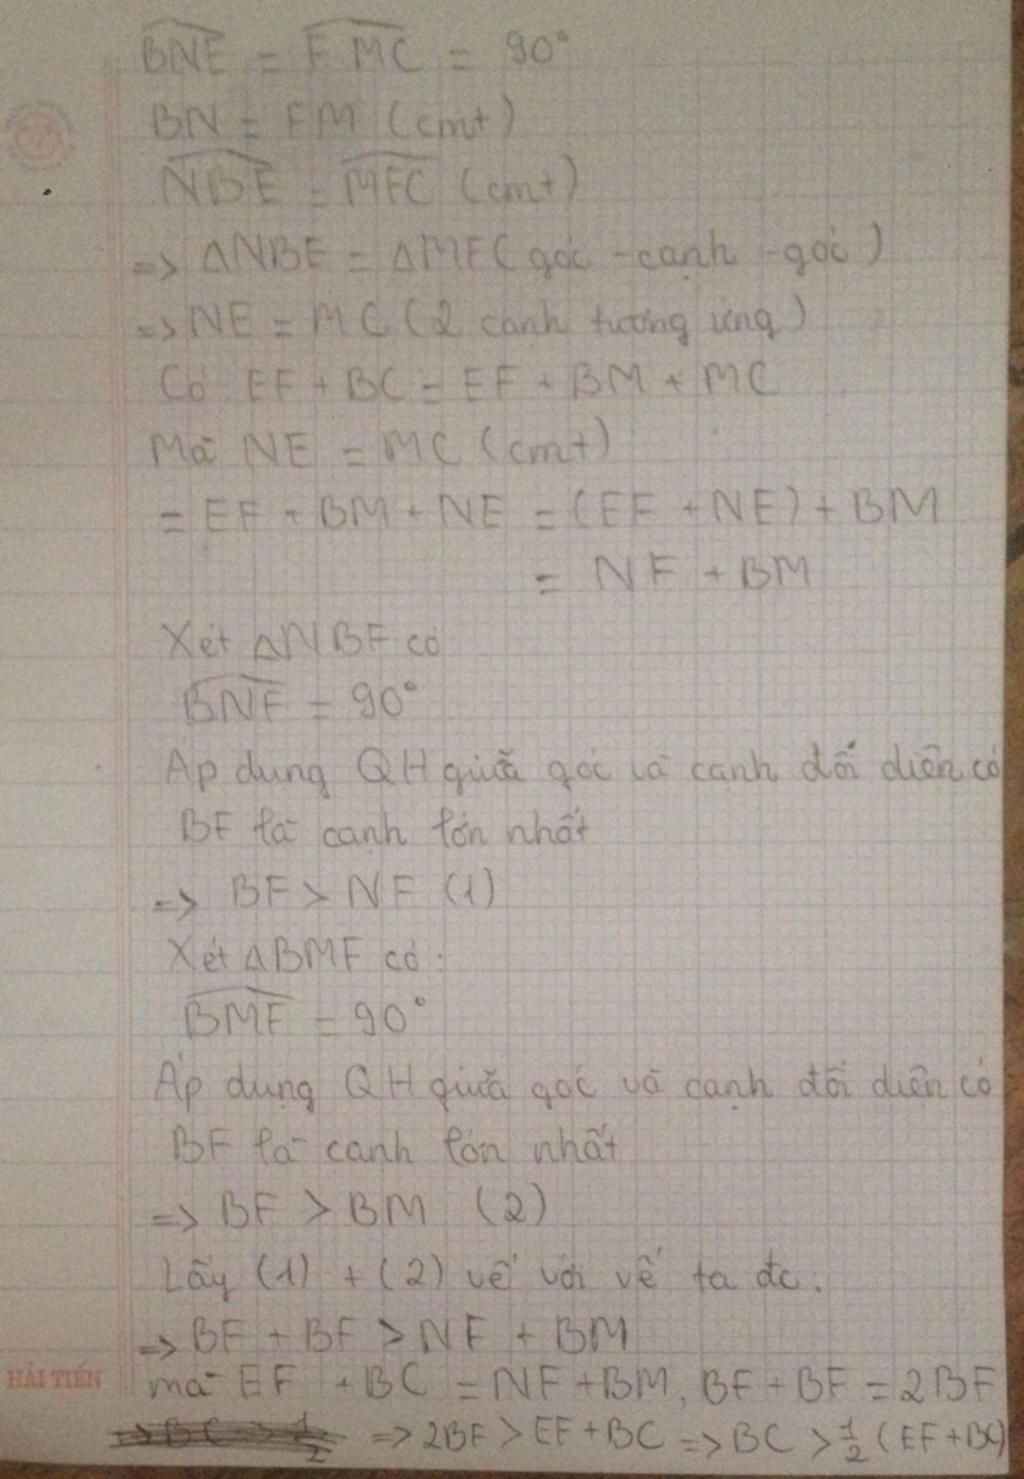 BNE = FMC = 90°
BN = FM (cmt)
NBE = MFC (cmt)
=> ΔNBE = ΔMFC (góc - cạnh - góc)
=> NE = MC (2 cạnh tương ứng)
Có EF + BC = EF + BM + MC
Mà NE = MC (cmt)
= EF + BM + NE = (EF + NE) + BM
= NF + BM
Xét ΔNBF có
BNF = 90°
Áp dụng QH giữa góc và cạnh đối diện có
BF là cạnh lớn nhất
=> BF > NF (1)
Xét ΔBMF có:
BMF = 90°
Áp dụng QH giữa góc và cạnh đối diện có
BF là cạnh lớn nhất
=> BF > BM (2)
Lấy (1) + (2) vế với vế ta đc:
=> BF + BF > NF + BM
mà EF + BC = NF + BM, BF + BF = 2BF
HẢI TIẾN
=> 2BF > EF + BC => BC > 1/2 (EF + BC)